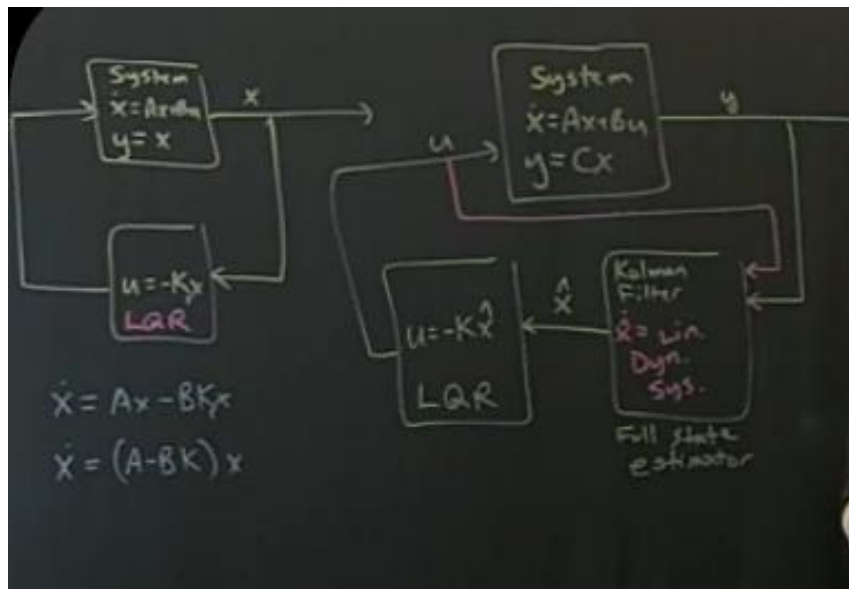 System
ẋ = Ax+Bu
y = x
x
u = -Kx
LQR
ẋ = Ax - BKx
ẋ = (A-BK)x
System
ẋ = Ax+Bu
y = Cx
y
u
Kalman
Filter
x̂̇ = Lin.
Dyn.
Sys.
Full state
estimator
x̂
u = -Kx̂
LQR